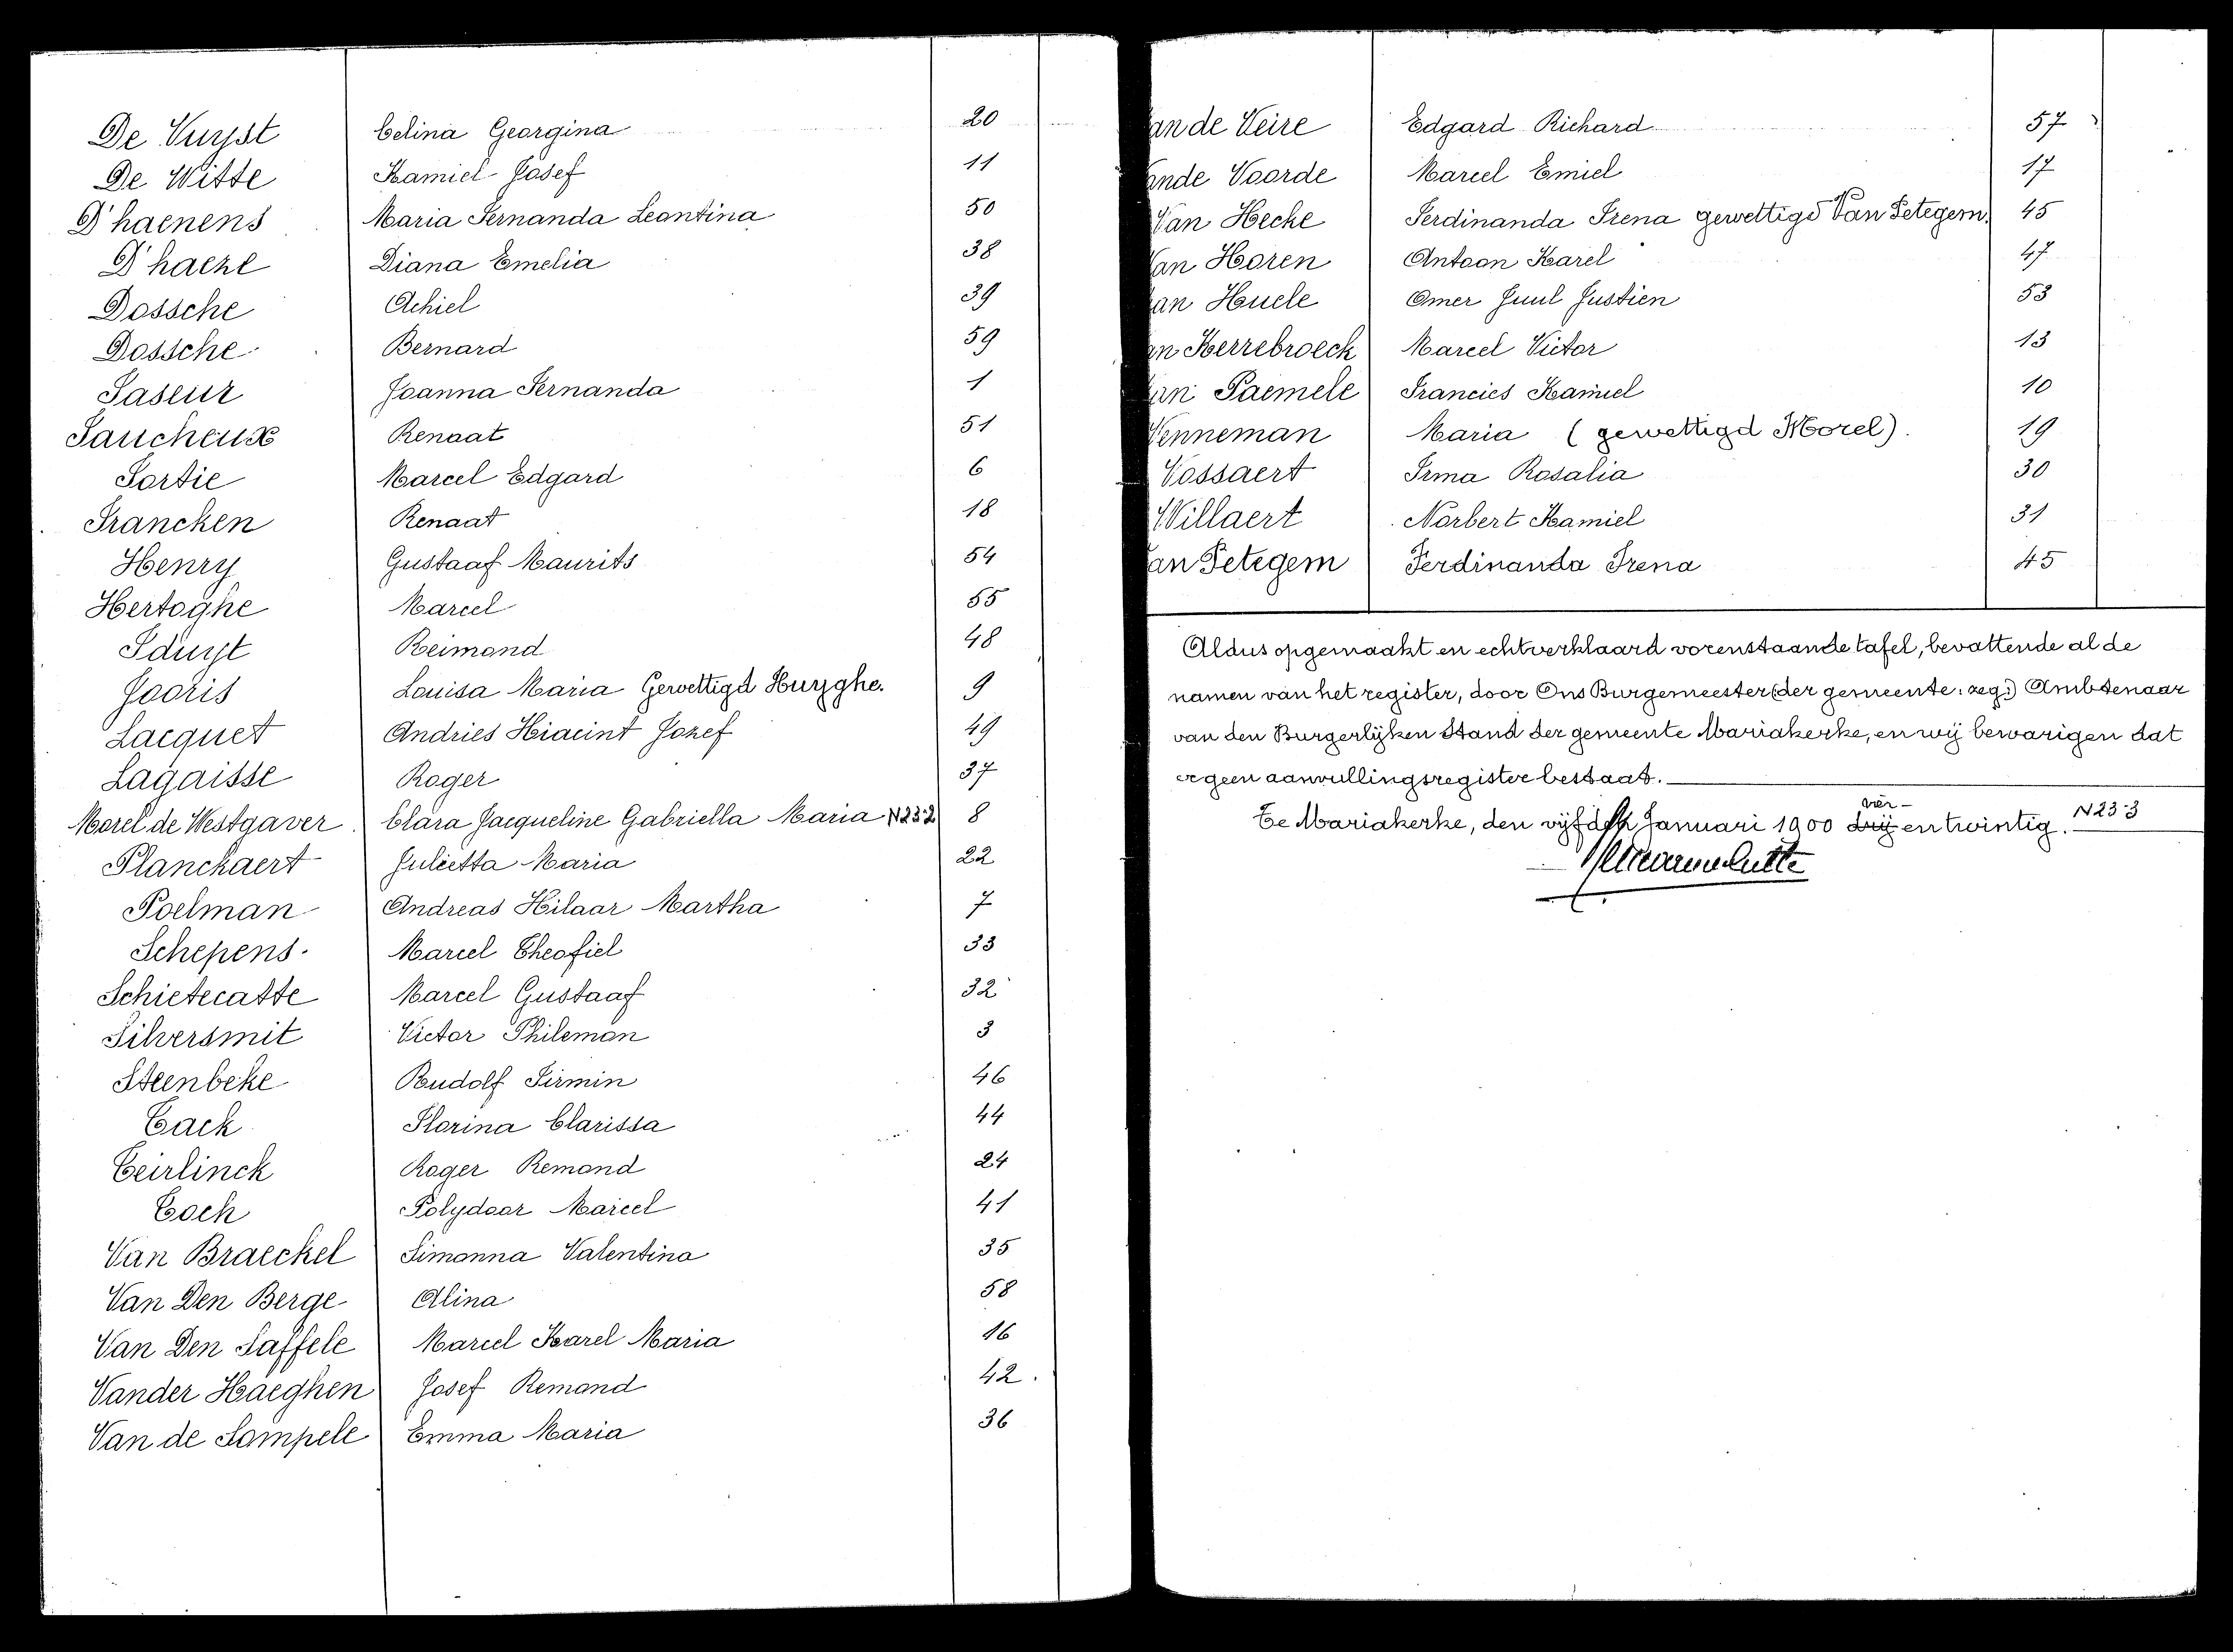 De Vuyst Celina Georgina 20
De Witte Kamiel Josef 11
D'haenens Maria Fernanda Leontina 50
D'haeze Diana Emelia 38
Dossche Achiel 39
Dossche Bernard 59
Faseur Joanna Fernanda 1
Faucheux Renaat 51
Fortie Marcel Edgard 6
Francken Renaat 18
Henry Gustaaf Maurits 54
Hertoghe Marcel 55
Iduyt Reimond 48
Jooris Louisa Maria Gewettigd Huyghe. 9
Lacquet Andries Hiacint Jozef 49
Lagaisse Roger 37
Morel de Westgaver Clara Jacqueline Gabriella Maria N23-2 8
Planckaert Julietta Maria 22
Poelman Andreas Hilaar Martha 7
Schepens Marcel Theofiel 33
Schietecatte Marcel Gustaaf 32
Silversmit Victor Philemon 3
Steenbeke Rudolf Firmin 46
Tack Florina Clarissa 44
Teirlinck Roger Remond 24
Tock Polydoor Marcel 41
Van Braeckel Simonna Valentina 35
Van Den Berge Alina 58
Van Den Saffele Marcel Karel Maria 16
Vander Haeghen Josef Remond 42
Van de Sompele Emma Maria 36
an de Veire Edgard Richard 57
ande Voorde Marcel Emiel 17
Van Hecke Ferdinanda Irena gewettigd Van Petegem. 45
Van Horen Antoon Karel 47
an Huele Omer Juul Justien 53
an Kerrebroeck Marcel Victor 13
an Paemele Francies Kamiel 10
Venneman Maria (gewettigd Morel). 19
Vossaert Irma Rosalia 30
Willaert Norbert Kamiel 31
an Petegem Ferdinanda Irena 45
Aldus opgemaakt en echtverklaard vorenstaande tafel, bevattende al de
namen van het register, door Ons Burgemeester (der gemeente: zeg:) Ambtenaar
van den Burgerlijken Stand der gemeente Mariakerke, en wij bevarigen dat
er geen aanvullingsregister bestaat.
vier-
Te Mariakerke, den vijfden Januari 1900 drij en twintig. N23-3